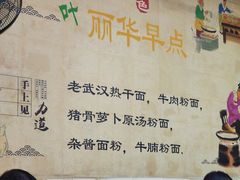 叶
色
丽华早点
手上见
力道
老武汉热干面，牛肉粉面，
猪骨萝卜原汤粉面，
杂酱面粉，牛腩粉面.